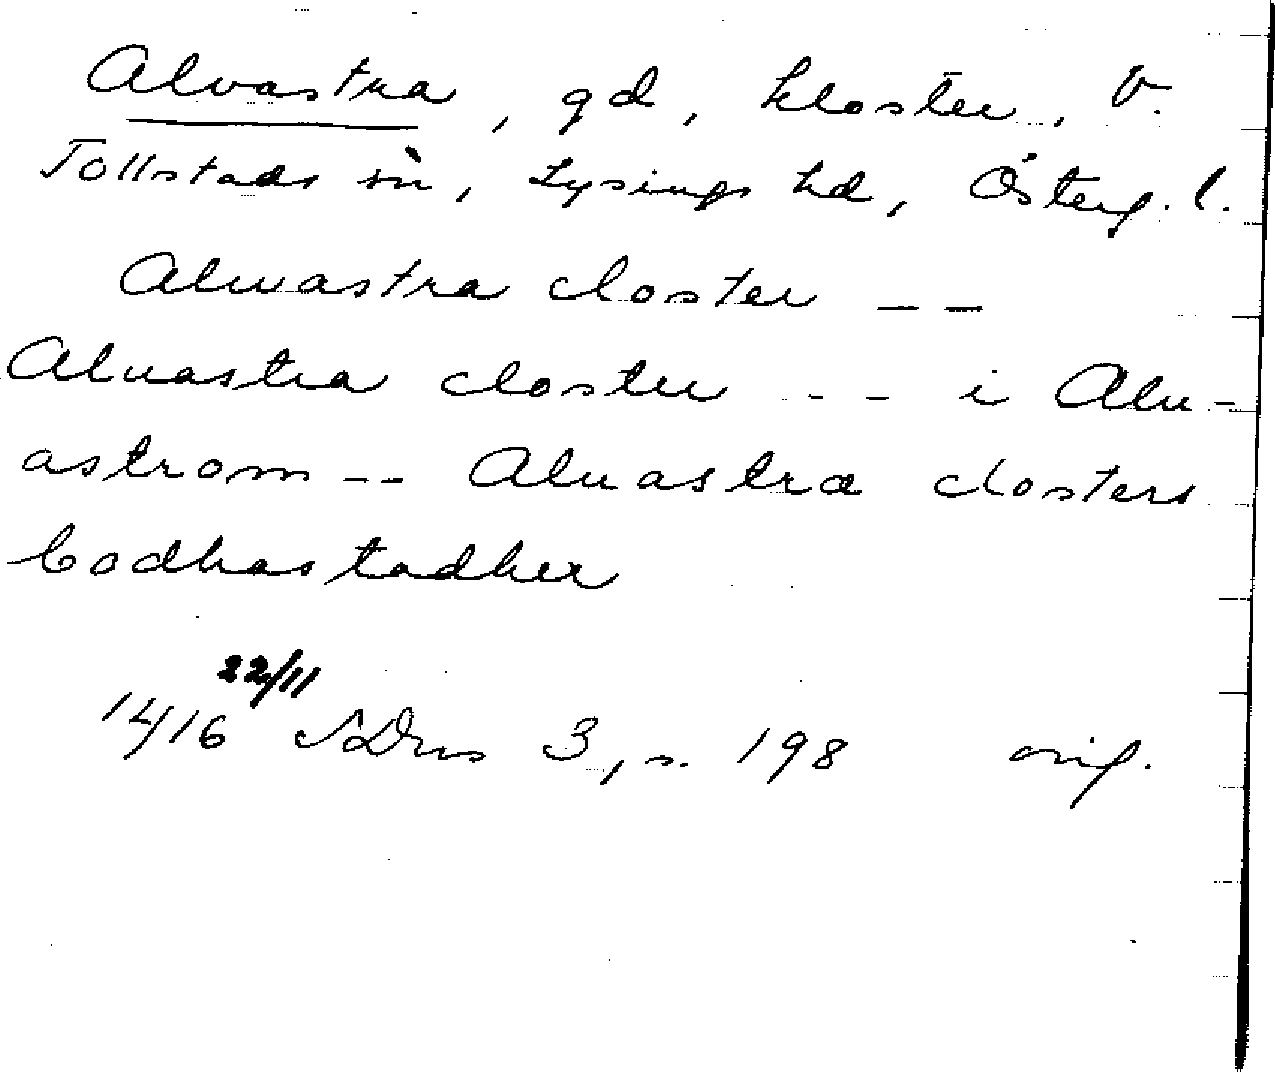 Alvastra, gd, kloster, V.
Tollstads sn, Lysings hd, Österg. l.
Alwastra closter – –
Aluastra closter - - - i Alu-
astrom - - - Aluastra closters
bodhastadher
1416 22/11 SDns 3, s. 198 orig.